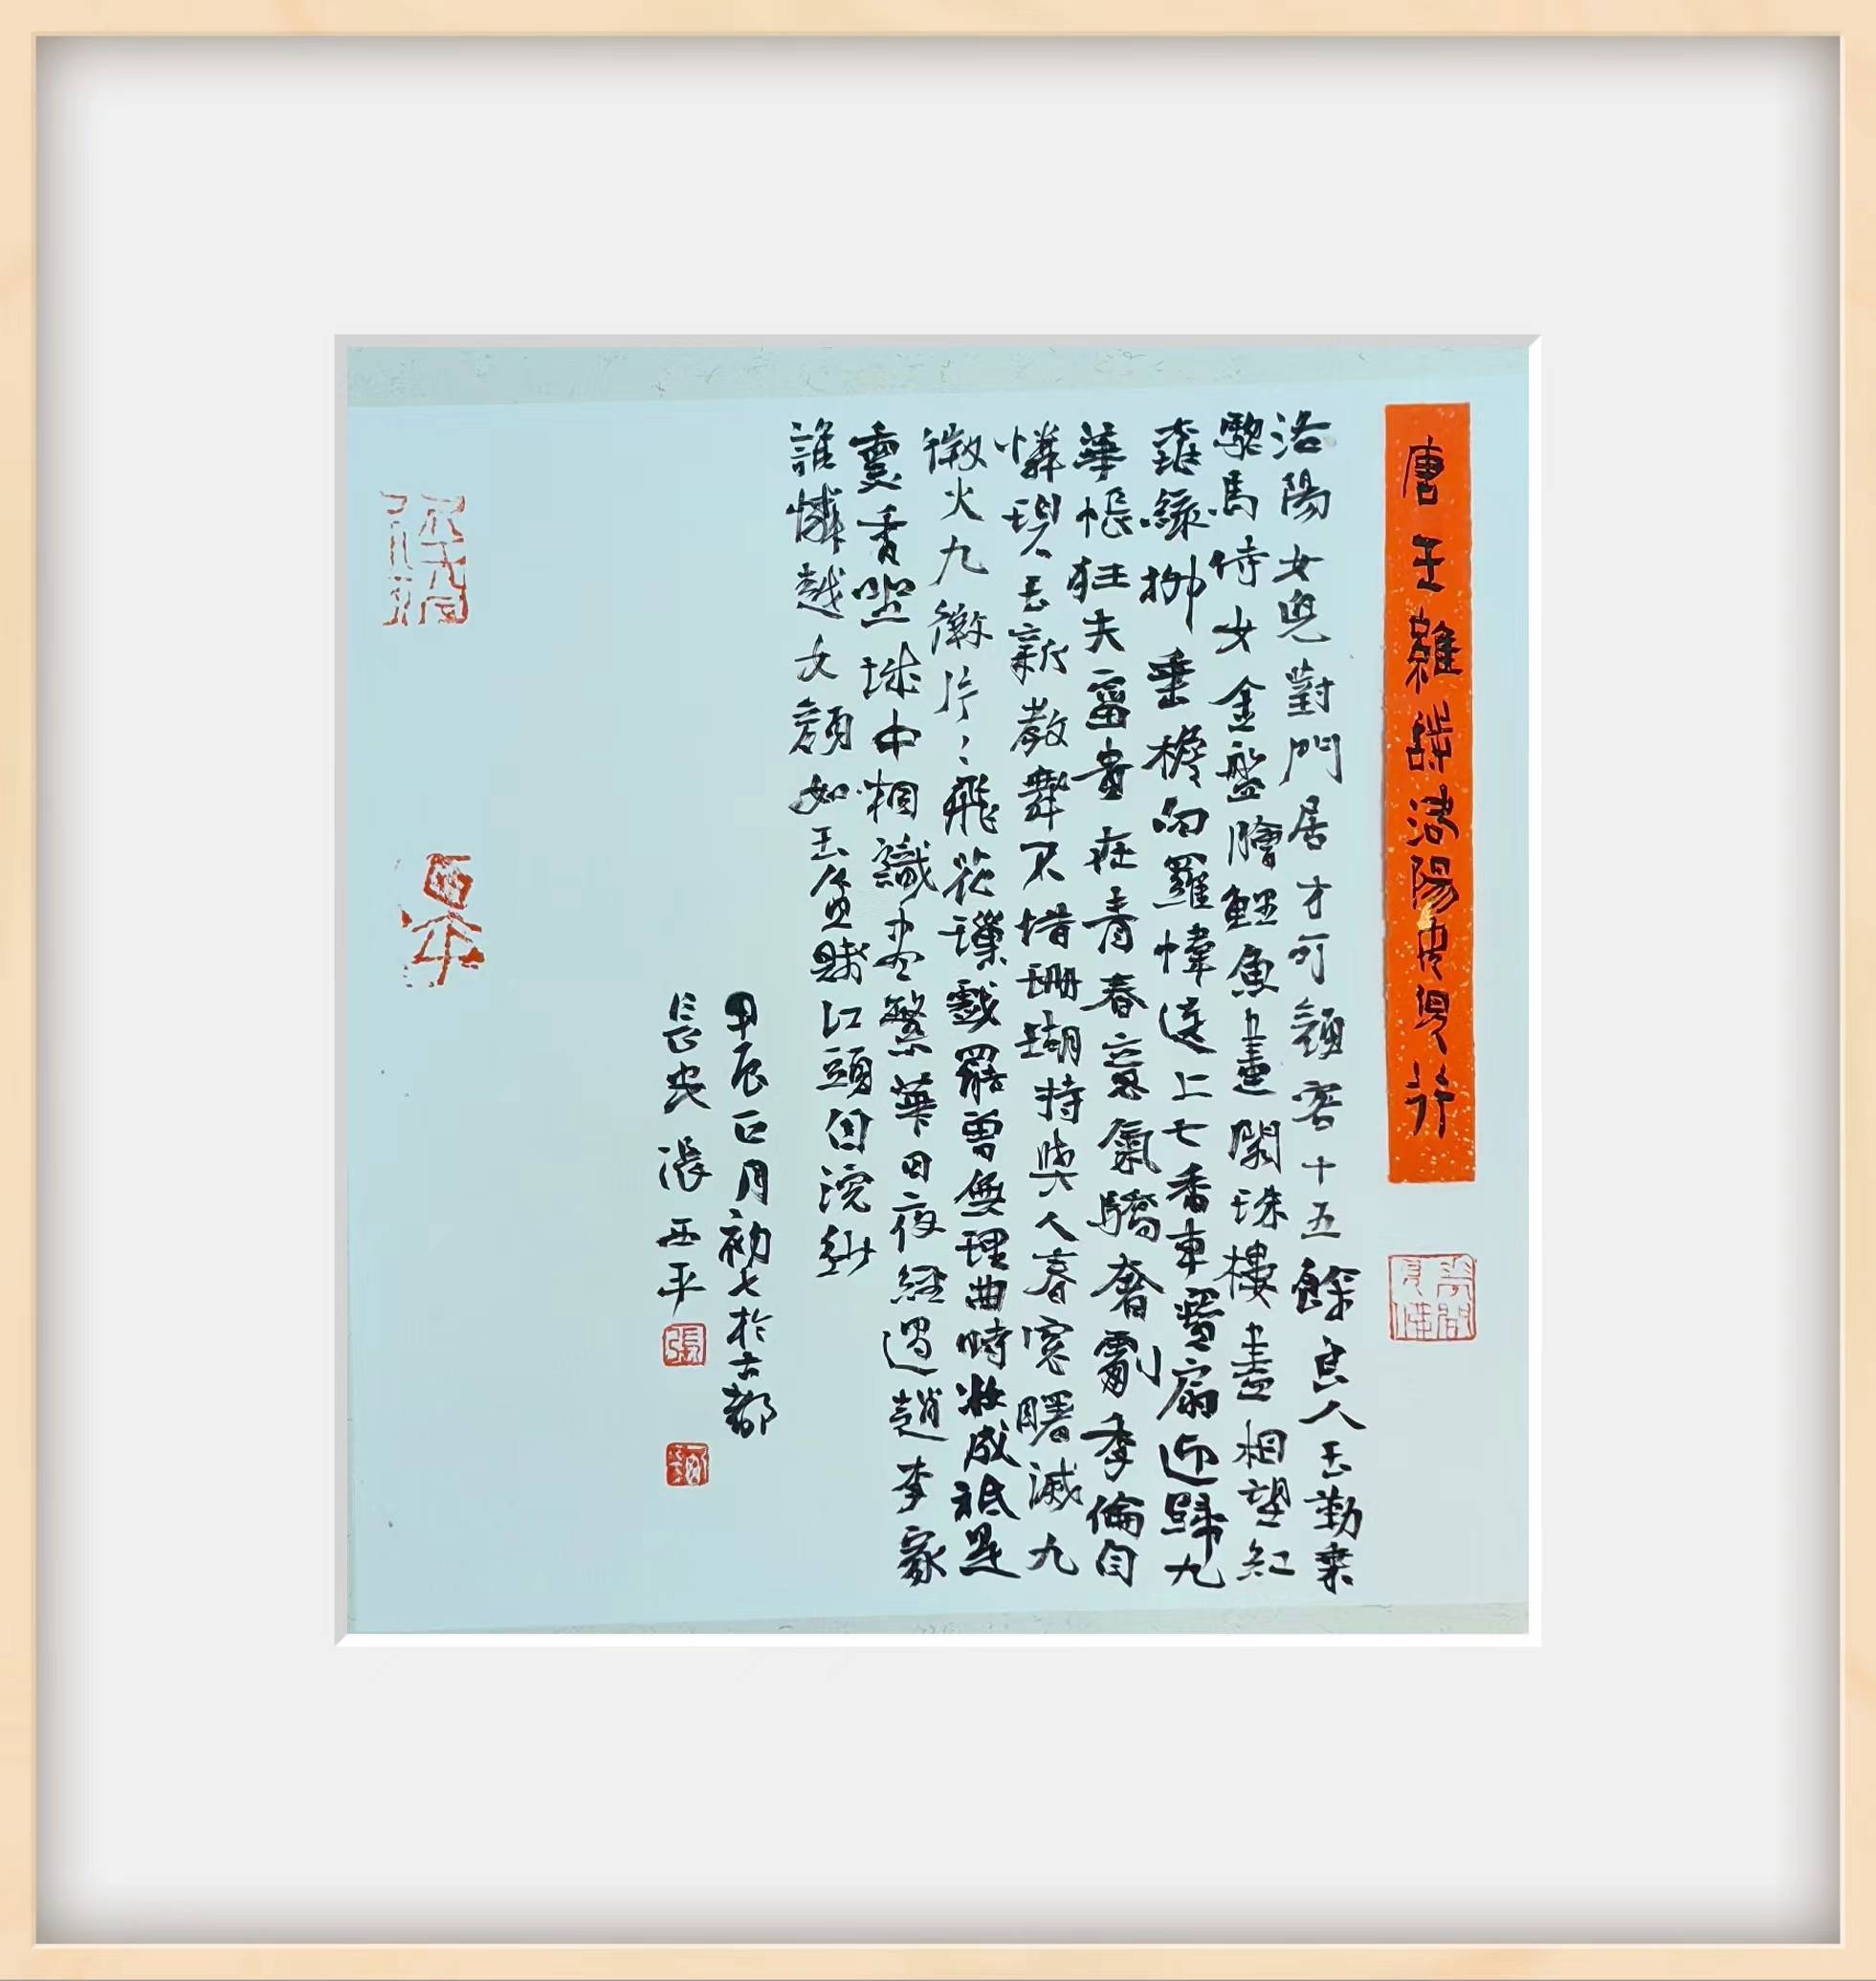 唐王維詩洛陽女兒行
洛陽女兒對門居才可顏容十五餘良人玉勒乘
驄馬侍女金盤膾鯉魚畫閣珠樓盡相望紅
桃綠柳垂檐向羅幃送上七香車寶扇迎歸九
華帳狂夫富貴在青春意氣驕奢劇季倫自
憐碧玉新教舞不惜珊瑚持與人春窓曙滅九
微火九微片々飛花璅戲罷曾無理曲時妝成祗是
熏香坐城中相識盡繁華日夜經過趙李家
誰憐越女顏如玉貧賤江頭自浣紗
甲辰正月初七於古都
長安張西平
張
西平